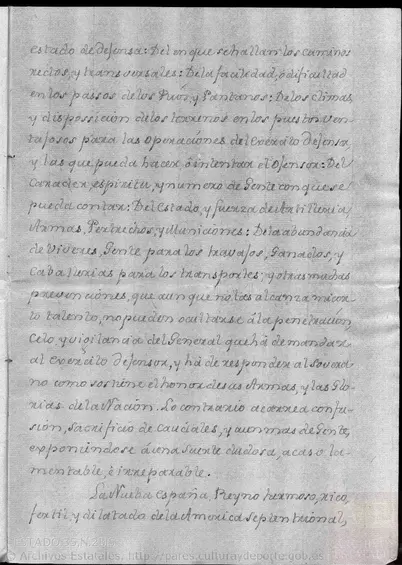 estado de defensa: Del en que se hallan los caminos
rectos, y transversales: De la facilidad, ò dificultad
en los passos de los Rios, y Pantanos: De los climas,
y dispossicion de los terrenos en los puestos ven-
tajosos para las operaciones del Exercito defensor,
y las que pueda hacer, ò intentar el Ofensor: Del
Caracter, espiritu, y numero de Gente con que se
pueda contar: Del Estado, y fuerza de Artilleria,
Armas, Pertrechos, y Municiones: De la abundancia
de Viveres, Gente para los travajos, Ganados, y
Cavallerias para los transportes; y otras muchas
prevenciones, que aunque no las alcanza mi cor-
to talento, no pueden ocultarse à la penetracion,
Celo, y vigilancia del General que há de mandar
al Exercito defensor, y há de responder al Sovera-
no como sostiene el honor de sus Armas, y las Glo-
rias de la Nación. Lo contrario acarrea confu-
sión, sacrificio de Caudales, y aun mas de Gente,
exponiendose à una suerte dudosa, acaso la-
mentable, è irreparable.
La Nueba España, Reyno hermoso, rico,
fertil, y dilatado de la America Septentrional,
© Archivos Estatales, http://pares.culturaydeporte.gob.es